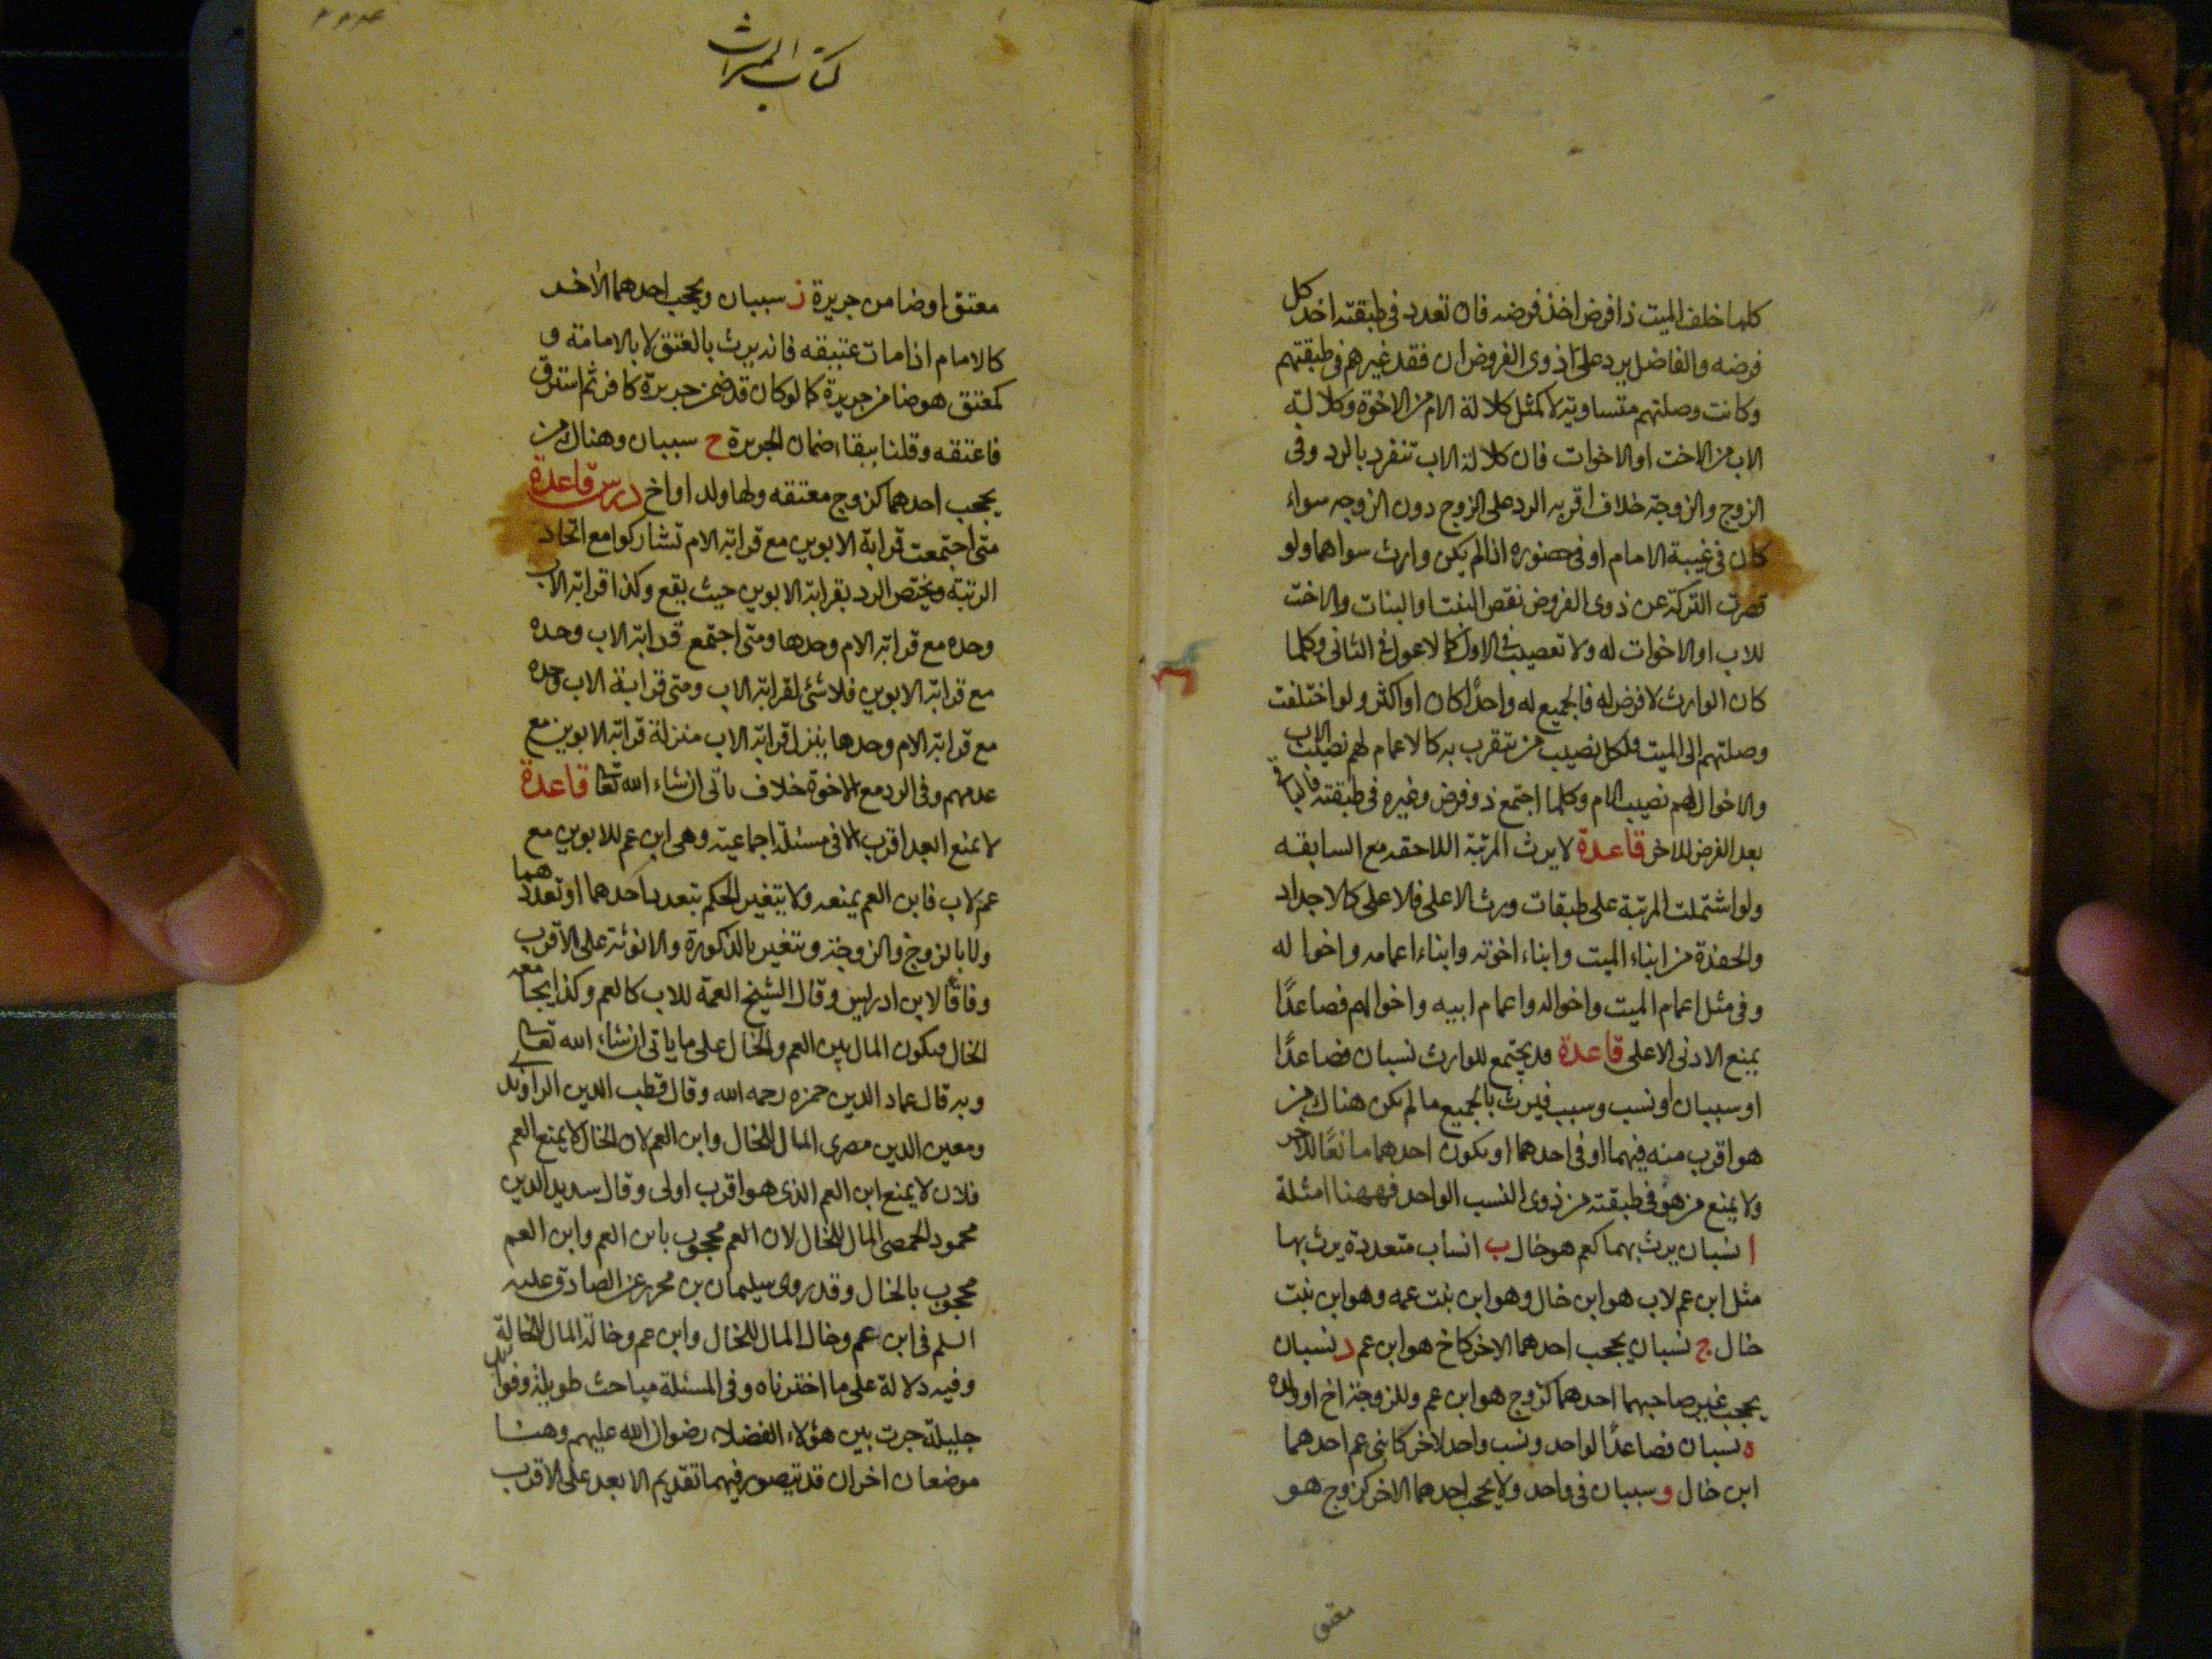 كلما خلف الميت ذا فرض اخذ فرضه فان تعدد فى طبقته اخذ كل
فرضه والفاضل يرد على ذوى الفروض ان فقد غيرهم فى طبقتهم
وكانت وصلتهم متساوية لا كمثل كلالة الام من الاخوة وكلالة
الاب من الاخت او الاخوات فان كلالة الاب تنفرد بالرد وفى
الزوج والزوجة خلاف اقربه الرد على الزوج دون الزوجه سواء
كان فى غيبة الامام او فى حضوره اذا لم يكن وارث سواهما ولو
قصرت التركة عن ذوى الفروض نقص البنت او البنات والاخت
للاب او الاخوات له ولا تعصيب فى الاول كما لا عول فى الثانى وكلما
كان الوارث لا فرض له فالجميع له واحدًا كان او اكثر ولو اختلفت
وصلتهم الى الميت فلكل نصيب من يتقرب به كالاعمام لهم نصيب الاب
والاخوال لهم نصيب الام وكلما اجتمع ذو فرض وغيره فى طبقته فالباقى
بعد الفرض للاخر قاعدة لا يرث المرتبة اللاحقه مع السابقه
ولو اشتملت المرتبة على طبقات ورث الاعلى فالاعلى كالاجداد
والحفدة من ابناء الميت وابناء اخوته وابناء اعمامه واخواله
وفى مثل اعمام الميت واخواله واعمام ابيه واخوالهم فصاعدًا
يمنع الادنى الاعلى قاعدة قد يجتمع للوارث نسبان فصاعدًا
او سببان او نسب وسبب فيرث بالجميع ما لم يكن هناك من
هو اقرب منه فيهما او فى احدهما او يكون احدهما مانعًا للاخر
ولا يمنع من هو فى طبقته من ذوى النسب الواحد فههنا امثلة
ا نسبان يرث بهما كعم هو خال ب انساب متعددة يرث بها
مثل ابن عم لاب هو ابن خال وهو ابن بنت عمه وهو ابن بنت
خال ج نسبان يحجب احدهما الاخر كاخ هو ابن عم د نسبان
يحجب غير صاحبهما احدهما كزوج هو ابن عم وللزوجة اخ او ولد
ه نسبان فصاعدًا لواحد ونسب واحد لاخر كابنى عم احدهما
ابن خال و سببان فى واحد ولا يحجب احدهما الاخر كزوج هو
معتق
كتاب الميراث
معتق او ضامن جريرة ز سببان ويحجب احدهما الاخر
كالامام اذا مات عتيقه فانه يرث بالعتق لا بالامامة و
كمعتق هو ضامن جريرة كما لو كان قد ضمن جريرة كافر ثم استرق
فاعتقه وقلنا ببقاء ضمان الجريرة ح سببان وهناك من
يحجب احدهما كزوج معتقه ولها ولد او اخ درس قاعدة
متى اجتمعت قرابة الابوين مع قرابة الام تشاركوا مع اتحاد
الرتبة ويختص الرد بقرابة الابوين حيث يقع وكذا قرابة الاب
وحده مع قرابة الام وحدها ومتى اجتمع قرابة الاب وحده
مع قرابة الابوين فلا شئ لقرابة الاب ومتى قرابة الاب وحده
مع قرابة الام وحدها ينزل قرابة الاب منزلة قرابة الابوين مع
عدمهم وفى الرد مع الاخوة خلاف ياتى ان شاء الله تعالى قاعدة
لا يمنع ابعد اقرب الا فى مسئلة اجماعية وهى ابن عم للابوين مع
عم لاب فابن العم يمنعه ولا يتغير الحكم بتعدد احدهما او تعددهما
ولا بالزوج والزوجة ويتغير بالذكورة والانوثة على الاقرب
وفاقًا لابن ادريس وقال الشيخ العمة للاب كالعم وكذا يجامعه
الخال فيكون المال بين العم والخال على ما ياتى ان شاء الله تعالى
وبه قال عماد الدين حمزه رحمه الله وقال قطب الدين الراوندى
ومعين الدين مصرى المال للخال وابن العم لان الخال لا يمنع العم
فلان لا يمنع ابن العم الذى هو اقرب اولى وقال سديد الدين
محمود الحمصى المال للخال لان العم محجوب بابن العم وابن العم
محجوب بالخال وقد روى سليمان بن محرز عن الصادق عليه
السلم فى ابن عم وخال المال للخال وابن عم وخالة المال للخالة
وفيه دلالة على ما اخترناه وفى المسئلة مباحث طويلة وفوائد
جليلة جرت بين هؤلاء الفضلاء رضوان الله عليهم وهنا
موضعان اخران قد يتصور فيهما تقديم الابعد على الاقرب